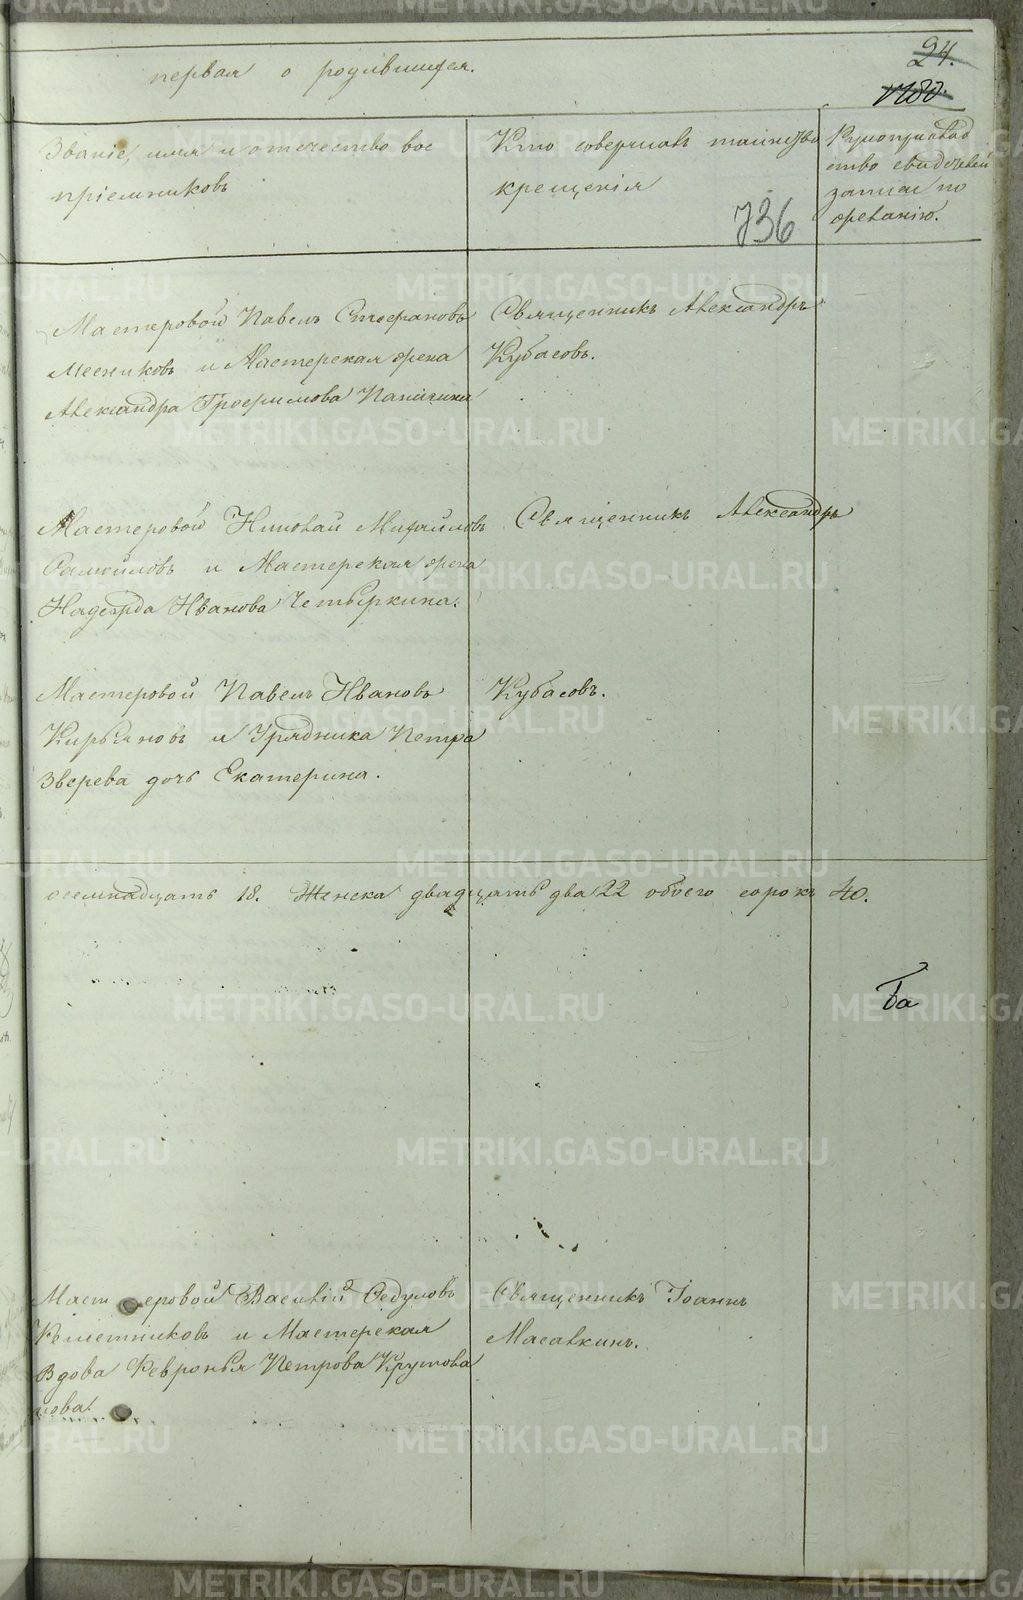 24.
первая о родившихся.
Званіе, имя и отечество вос
пріемниковъ
Кто совершалъ таинство
крещенія
Рукоприклад
ство свидетелей
записи по
желанію.
736
Мастеровой Павелъ Стефановъ
Месниковъ и Мастерская жена
Александра Трофимова Папигина
Священникъ Александръ
Кубасовъ.
Мастеровой Николай Михайловъ
и Мастерская жена
Надежда Иванова Четыркина.
Священникъ Александръ
Мастеровой Павелъ Ивановъ
Кирьяновъ и Урядника Петра
Зверева дочь Екатерина.
Кубасовъ.
осемнадцать 18. Женска двадцать два 22 обоего сорокъ 40.
Ба
Мастеровой Василій Федуловъ
Решетниковъ и Мастерская
Вдова Февронья Петрова Крутова
Священникъ Іоаннъ
Масалкинъ.
METRIKI.GASO-URAL.RU